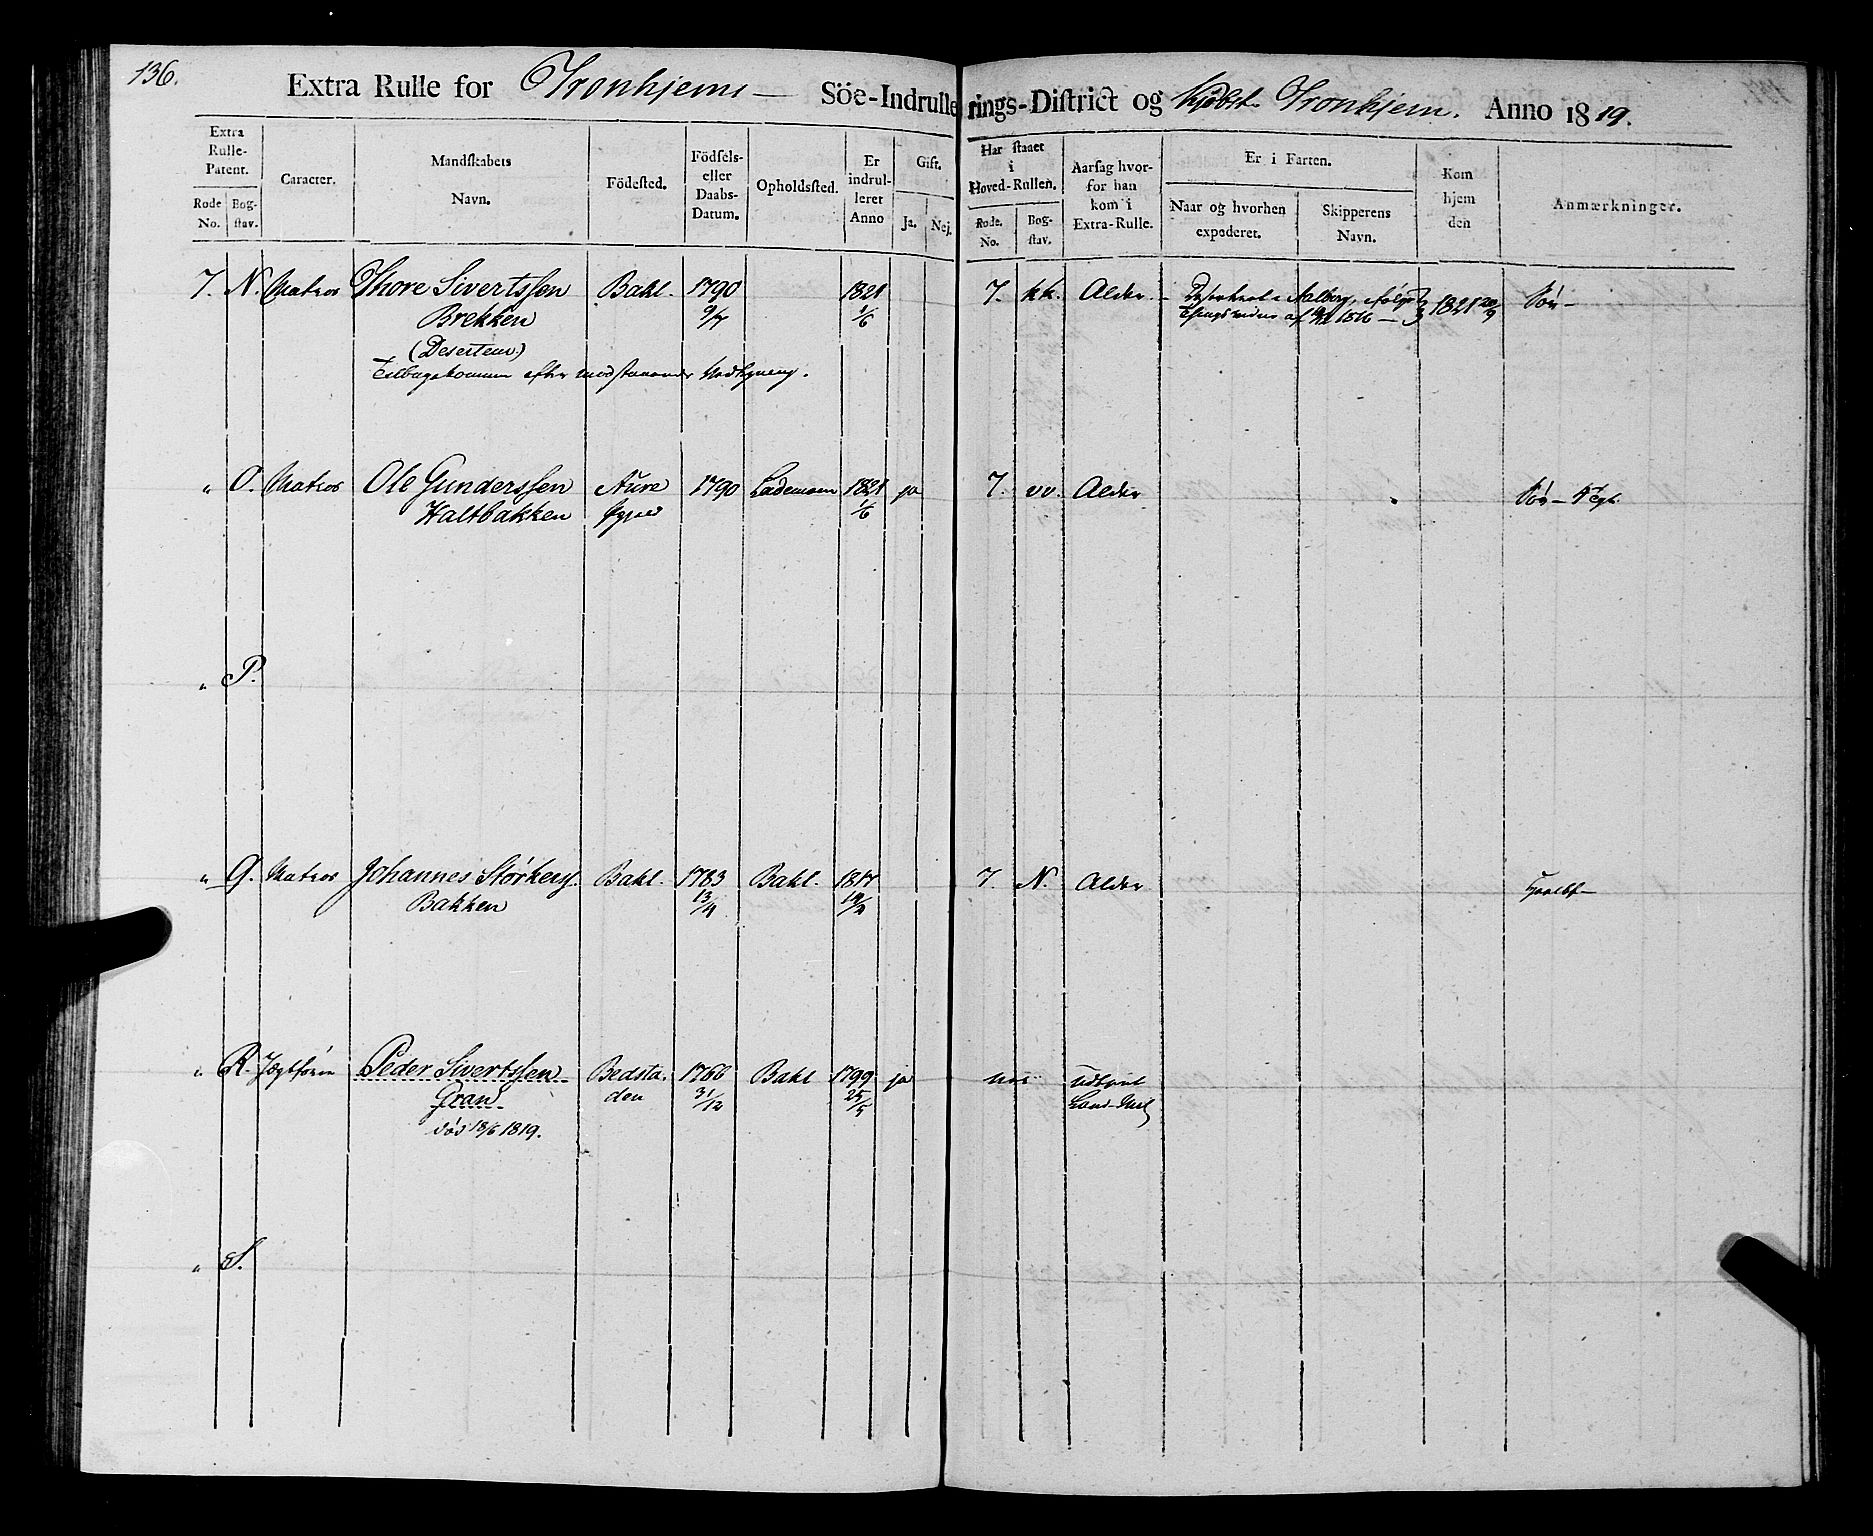 136.
Extra Rulle for Tronhjems Söe-Indrullerings-District og Kjøbst. Tronhjem. Anno 1819.
Extra Rulle-Patent. Rode No. Bogstav. Caracter. Mandskabets Navn. Födested. Födsels- eller Daabs-Datum. Opholdssted. Er indrulleret Anno Gift. Ja. Nej. Har staaet i Hoved-Rullen. Rode. No. Bogstav. Aarsag hvorfor han kom i Extra-Rulle. Er i Farten. Naar og hvorhen expederet. Skipperens Navn. Kom hjem den Anmærkninger.
7. N. Matros Thore Sivertssen Bakl. 1790 1821 7. kk. Alder. 1821 20/9 Søn
Brekken 9/7 1/6
(Deserteur)
Tilbagekommen efter modstaaende
" O. Matros Ole Gunderssen Aure 1790 Lademoen 1821 ja 7. vv. Alder
Haltbakken 1/6
" P.
" Q. Matros Johannes Størkers. Bakl. 1783 Bakl. 1817 7. N. Alder
Bakken 13/4
" R. Jægtfører Peder Sivertssen Bedsta- 1766 Bakl 1799 ja
Gran den 31/12 25/5
død 18/6 1819.
" S.